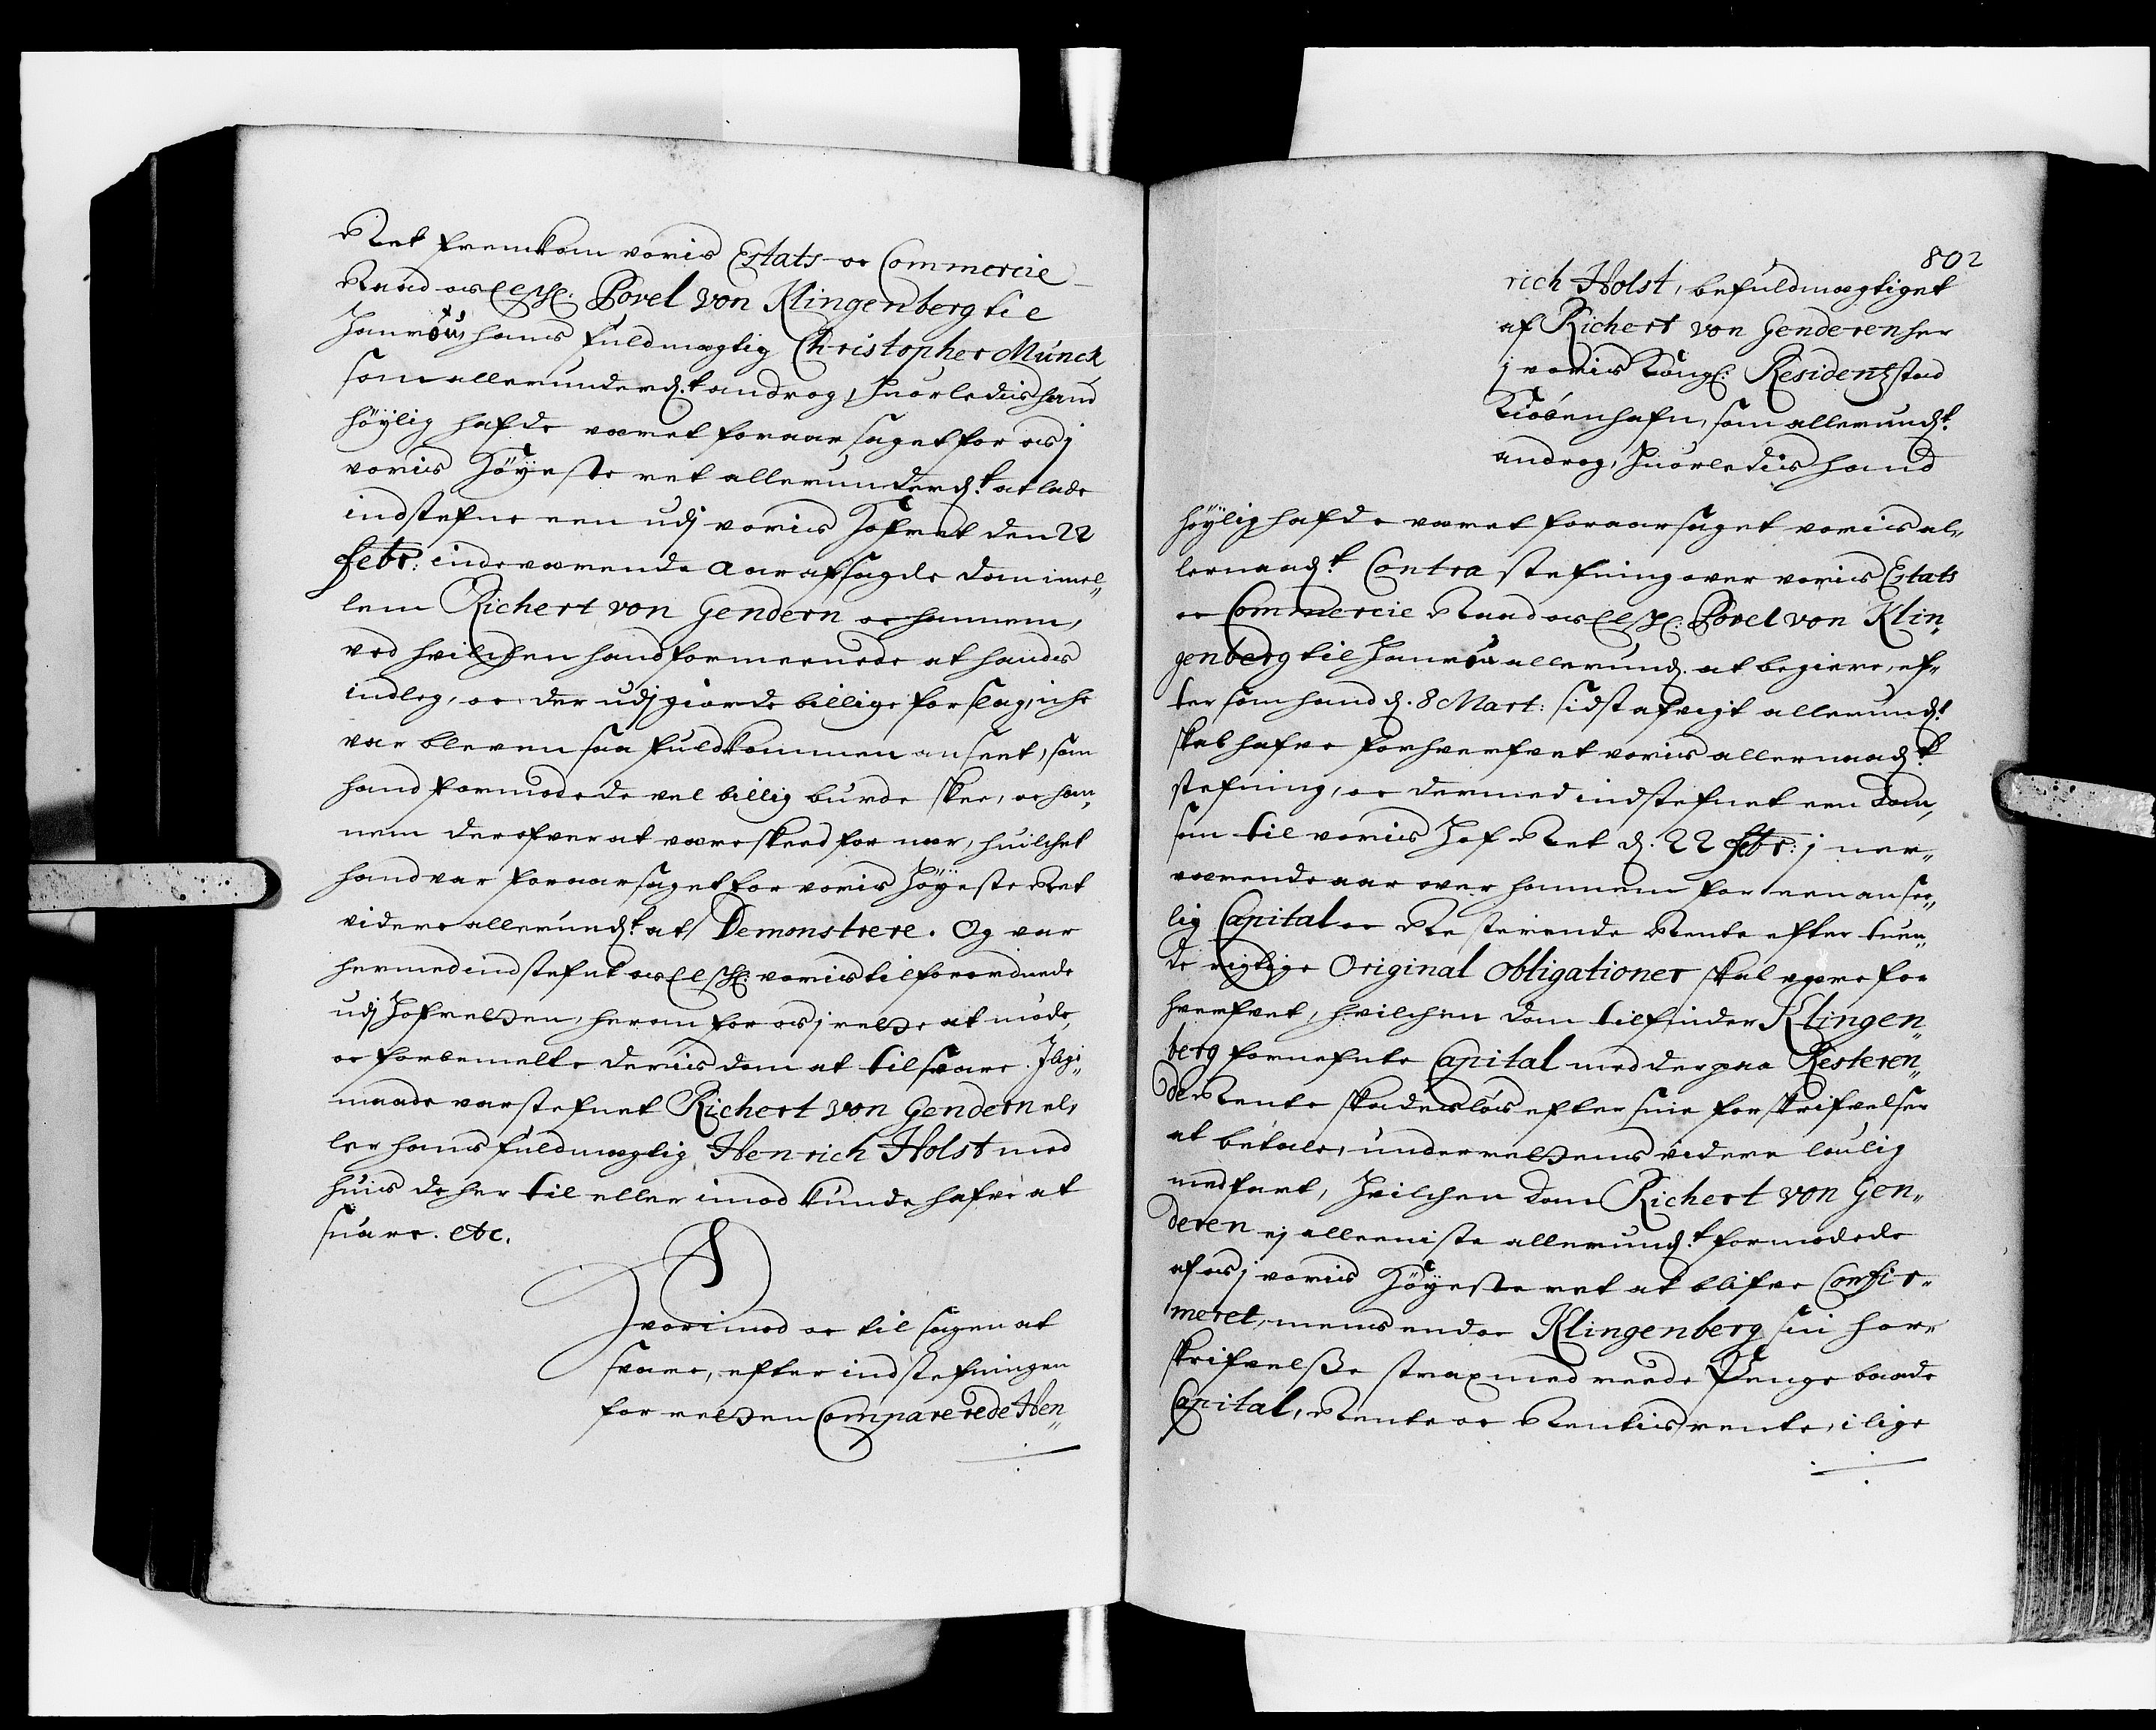 Ret fremkom voris Estats- oc Commercie
Raad os Elschl: Povel von Klingenberg til
Hanrou, hans fuldmægtig Christopher Munck
som allerunderd.t androg, huorledis hand
høylig hafde været foraarsaget for os j
voris Høyeste ret allerunderd.t at lade
indstefne een udj voris Hofret den 22
febr: indeværende aar afsagde dom imel„
lem Richert von Gendern oc hannem,
ved hvilchen hand formeenede at handis
indleg, oc der udj giorde billige forslag, iche
var bleven saa fuldkommen anseet, som
hand formodede vel billig burde skee, oc han„
nem derofver at være skeed for nær, huilchet
hand var foraarsaget for voris Høyeste Ret
videre allerund.t at Demonstrere. Og var
hermed indstefnt os Elschl: voris tilforordnede
udj Hofretten, herom for os j rette at møde,
oc forbemelte deris dom at tilsvare. Jlige
maade var stefnet Richert von Gendern el„
ler hans fuldmægtig Henrich Holst med
huis de her til eller imod kunde hafve at
suare. etc.
Hvorimod oc til sagen at
svare, efter indstefningen
for retten Comparerede Hen„
802
rich Holst, befuldmægtiget
af Richert von Genderen her
j voris Kongl: Residentz stad
Kiøbenhafn, som allerund.t
androg, huorledis hand
høylig hafde været foraarsaget voris al„
lernaad.t Contra stefning over voris Estats
oc Commercie Raad os Elschl: Povel von Klin„
genberg til Hanrou allerund. at begiere, ef„
tersom hand d. 8 Mart: sidst afvigt allerund.t
skal hafve forhverfvet voris allernaad.t
stefning, oc dermed indstefnet een dom,
som til voris Hof Ret d. 22 febr: j nær„
værende aar over hannem for een ansee„
lig Capital oc Resterende Rente efter tuen„
de rigtige Original obligationer skal være for
hverfvet, hvilchen dom tilfinder Klingen„
berg fornefnte Capital med derpaa Resteren„
de Rente skadesløs efter sine forskrifvelser
at betale, under rettens videre loulig
medfart, hvilchen dom Richert von Gen„
deren ej alleeniste allerund.t formodede
af os j voris Høyeste ret at blifve Confir„
meret, mens endoc Klingenberg sin for„
skrifvelsse strax med reede Penge baade
Capital, Rente oc Rentis rente, i lige